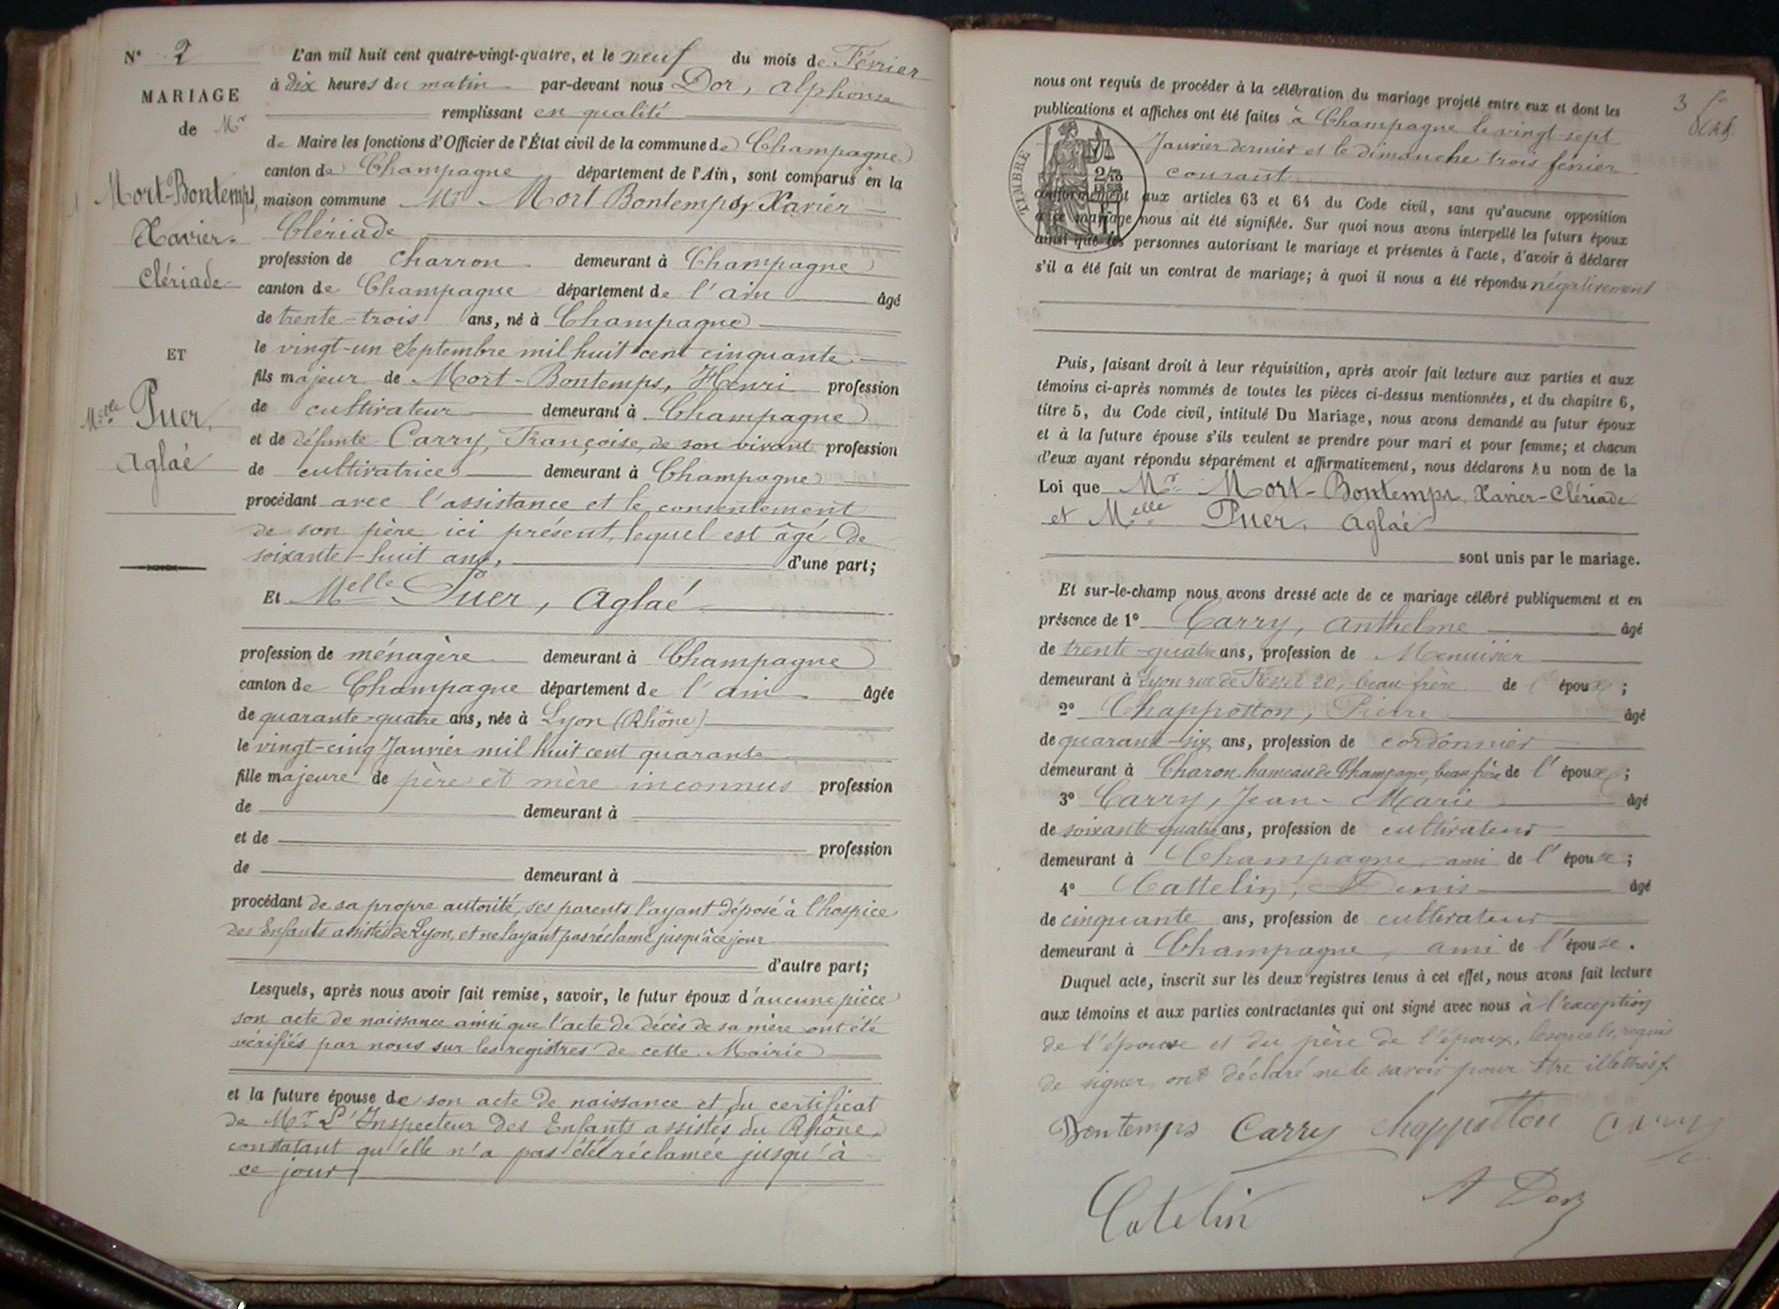 N° 2
MARIAGE
de Mr
Mort-Bontemps,
Xavier-
Clériade
ET
Melle Puer,
Aglaé
L'an mil huit cent quatre-vingt-quatre, et le neuf du mois de Février
à dix heures du matin par-devant nous Dor, Alphonse
remplissant en qualité
de Maire les fonctions d'Officier de l'État civil de la commune de Champagne
canton de Champagne département de l'Ain, sont comparus en la
maison commune Mr Mort Bontemps, Xavier
Clériade
profession de charron demeurant à Champagne
canton de Champagne département de l'ain âgé
de trente-trois ans, né à Champagne
le vingt-un Septembre mil huit cent cinquante
fils majeur de Mort-Bontemps, Henri profession
de cultivateur demeurant à Champagne
et de défunte Carry, Françoise, de son vivant profession
de cultivatrice demeurant à Champagne
procédant avec l'assistance et le consentement
de son père ici présent, lequel est âgé de
soixante-huit ans, d'une part;
Et Melle Puer, Aglaé
profession de ménagère demeurant à Champagne
canton de Champagne département de l'ain âgée
de quarante-quatre ans, née à Lyon (Rhône)
le vingt-cinq Janvier mil huit cent quarante
fille majeure de père et mère inconnus profession
de demeurant à
et de profession
de demeurant à
procédant de sa propre autorité, ses parents l'ayant déposé à l'hospice
des Enfants assistés de Lyon, et ne l'ayant pas réclamé jusqu'à ce jour
d'autre part;
Lesquels, après nous avoir fait remise, savoir, le futur époux d'aucune pièce
son acte de naissance ainsi que l'acte de décès de sa mère ont été
vérifiés par nous sur les registres de cette Mairie
et la future épouse de son acte de naissance et du certificat
de Mr L'Inspecteur des Enfants assistés du Rhône
constatant qu'elle n'a pas été réclamée jusqu'à
ce jour
3
nous ont requis de procéder à la célébration du mariage projeté entre eux et dont les
publications et affiches ont été faites à Champagne le vingt sept
Janvier dernier et le dimanche trois février
courant
TIMBRE
conformément aux articles 63 et 64 du Code civil, sans qu'aucune opposition
à ce mariage nous ait été signifiée. Sur quoi nous avons interpellé les futurs époux
ainsi que les personnes autorisant le mariage et présentes à l'acte, d'avoir à déclarer
s'il a été fait un contrat de mariage; à quoi il nous a été répondu négativement
Puis, faisant droit à leur réquisition, après avoir fait lecture aux parties et aux
témoins ci-après nommés de toutes les pièces ci-dessus mentionnées, et du chapitre 6,
titre 5, du Code civil, intitulé Du Mariage, nous avons demandé au futur époux
et à la future épouse s'ils veulent se prendre pour mari et pour femme; et chacun
d'eux ayant répondu séparément et affirmativement, nous déclarons Au nom de la
Loi que Mr Mort-Bontemps Xavier-Clériade
et Melle Puer, Aglaé
sont unis par le mariage.
Et sur-le-champ nous avons dressé acte de ce mariage célébré publiquement et en
présence de 1° Carry, Anthelme âgé
de trente-quatre ans, profession de Menuisier
demeurant à Lyon rue de 20, beau frère de l'époux;
2° Chapposton, Pierre âgé
de quarante-six ans, profession de cordonnier
demeurant à Charon hameau de Champagne, beau frère de l'époux;
3° Carry, Jean-Marie âgé
de soixante quatre ans, profession de cultivateur
demeurant à Champagne ami de l'épouse;
4° Cattelin, Denis âgé
de cinquante ans, profession de cultivateur
demeurant à Champagne, ami de l'épouse.
Duquel acte, inscrit sur les deux registres tenus à cet effet, nous avons fait lecture
aux témoins et aux parties contractantes qui ont signé avec nous à l'exception
de l'épouse et du père de l'époux, lesquels, requis
de signer, ont déclaré ne le savoir pour être illettrés.
Bontemps Carry Chapposton Carry
Catelin A Dor